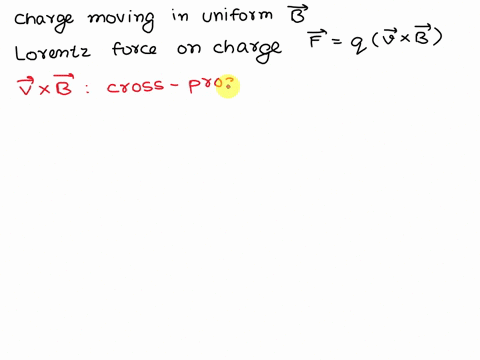 charge moving in uniform B⃗
Lorentz force on charge F⃗ = q (v⃗ × B⃗)
v⃗ × B⃗ : cross -